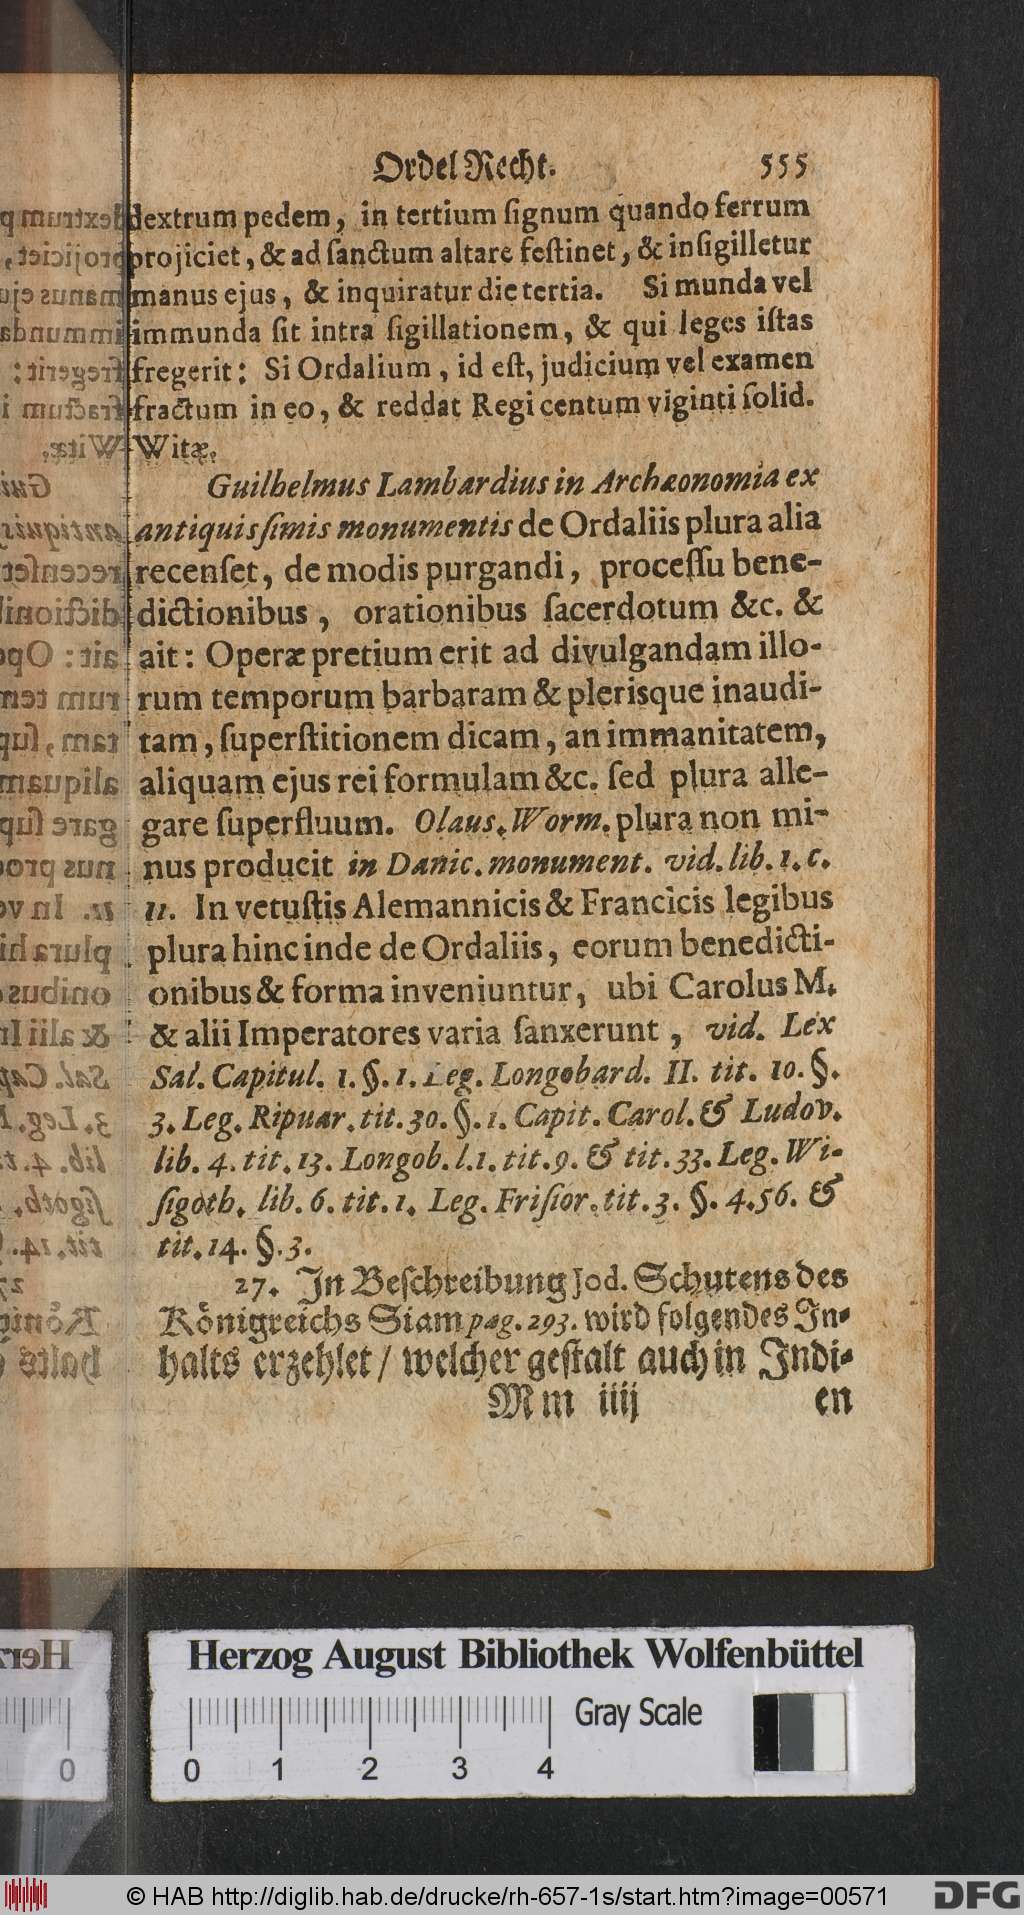 Ordel Recht. 555
dextrum pedem, in tertium ſignum quando ferrum
projiciet, & ad ſanctum altare feſtinet, & inſigilletur
manus ejus, & inquiratur die tertia. Si munda vel
immunda ſit intra ſigillationem, & qui leges iſtas
fregerit: Si Ordalium, id eſt, judicium vel examen
fractum in eo, & reddat Regi centum viginti ſolid.
Witæ.
Guilhelmus Lambardius in Archæonomia ex
antiquisſimis monumentis de Ordaliis plura alia
recenſet, de modis purgandi, proceſſu bene-
dictionibus, orationibus ſacerdotum &c. &
ait: Operæ pretium erit ad divulgandam illo-
rum temporum barbaram & plerisque inaudi-
tam, ſuperſtitionem dicam, an immanitatem,
aliquam ejus rei formulam &c. ſed plura alle-
gare ſuperfluum. Olaus. Worm. plura non mi-
nus producit in Danic. monument. vid. lib. 1. c.
11. In vetuſtis Alemannicis & Francicis legibus
plura hinc inde de Ordaliis, eorum benedicti-
onibus & forma inveniuntur, ubi Carolus M.
& alii Imperatores varia ſanxerunt, vid. Lex
Sal. Capitul. 1. §. 1. Leg. Longobard. II. tit. 10. §.
3. Leg. Ripuar. tit. 30. §. 1. Capit. Carol. & Ludov.
lib. 4. tit. 13. Longob. l. 1. tit. 9. & tit. 33. Leg. Wi-
ſigoth. lib. 6. tit. 1. Leg. Friſior. tit. 3. §. 4. 56. &
tit. 14. §. 3.
27. In Beſchreibung Jod. Schutens des
Königreichs Siam pag. 293. wird folgendes In-
halts erzehlet / welcher geſtalt auch in Indi-
Mm iiij en
Herzog August Bibliothek Wolfenbüttel
Gray Scale
0 1 2 3 4
© HAB http://diglib.hab.de/drucke/rh-657-1s/start.htm?image=00571
DFG